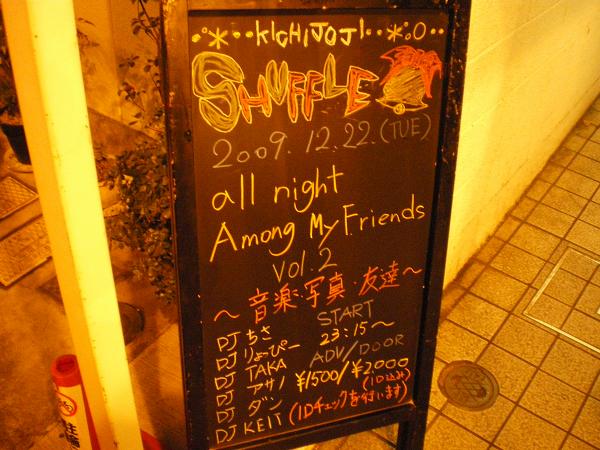 KICHIJOJI
SHUFFLE
2009.12.22.(TUE)
all night
Among My Friends
vol.2
～音楽・写真・友達～
DJ ちさ
DJ りょーぴー
DJ TAKA
DJ アサノ
DJ ダン
DJ KEIT
START
23:15～
ADV/DOOR
¥1500/¥2000
(1D込み)
(IDチェックを行います)